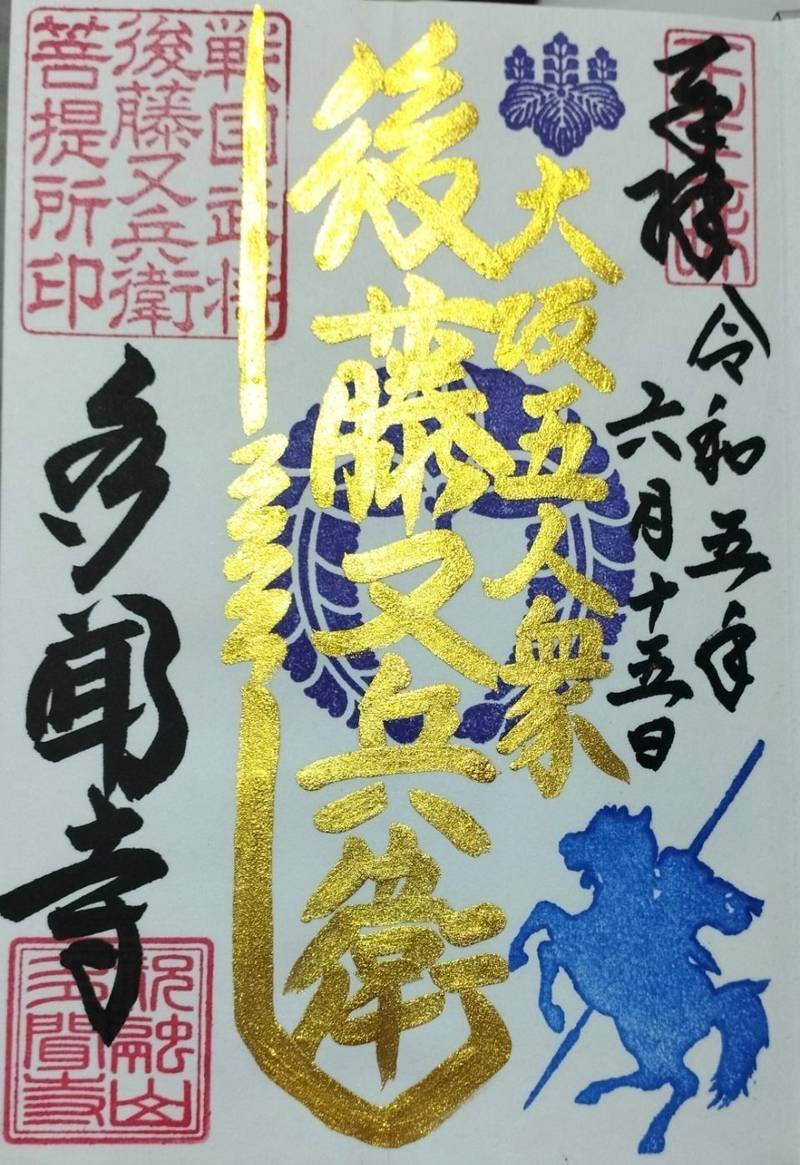 奉拝
令和五年
六月十五日
大坂五人衆
後藤又兵衛
戦国武将
後藤又兵衛
菩提所印
多聞寺
祝融山
多聞寺